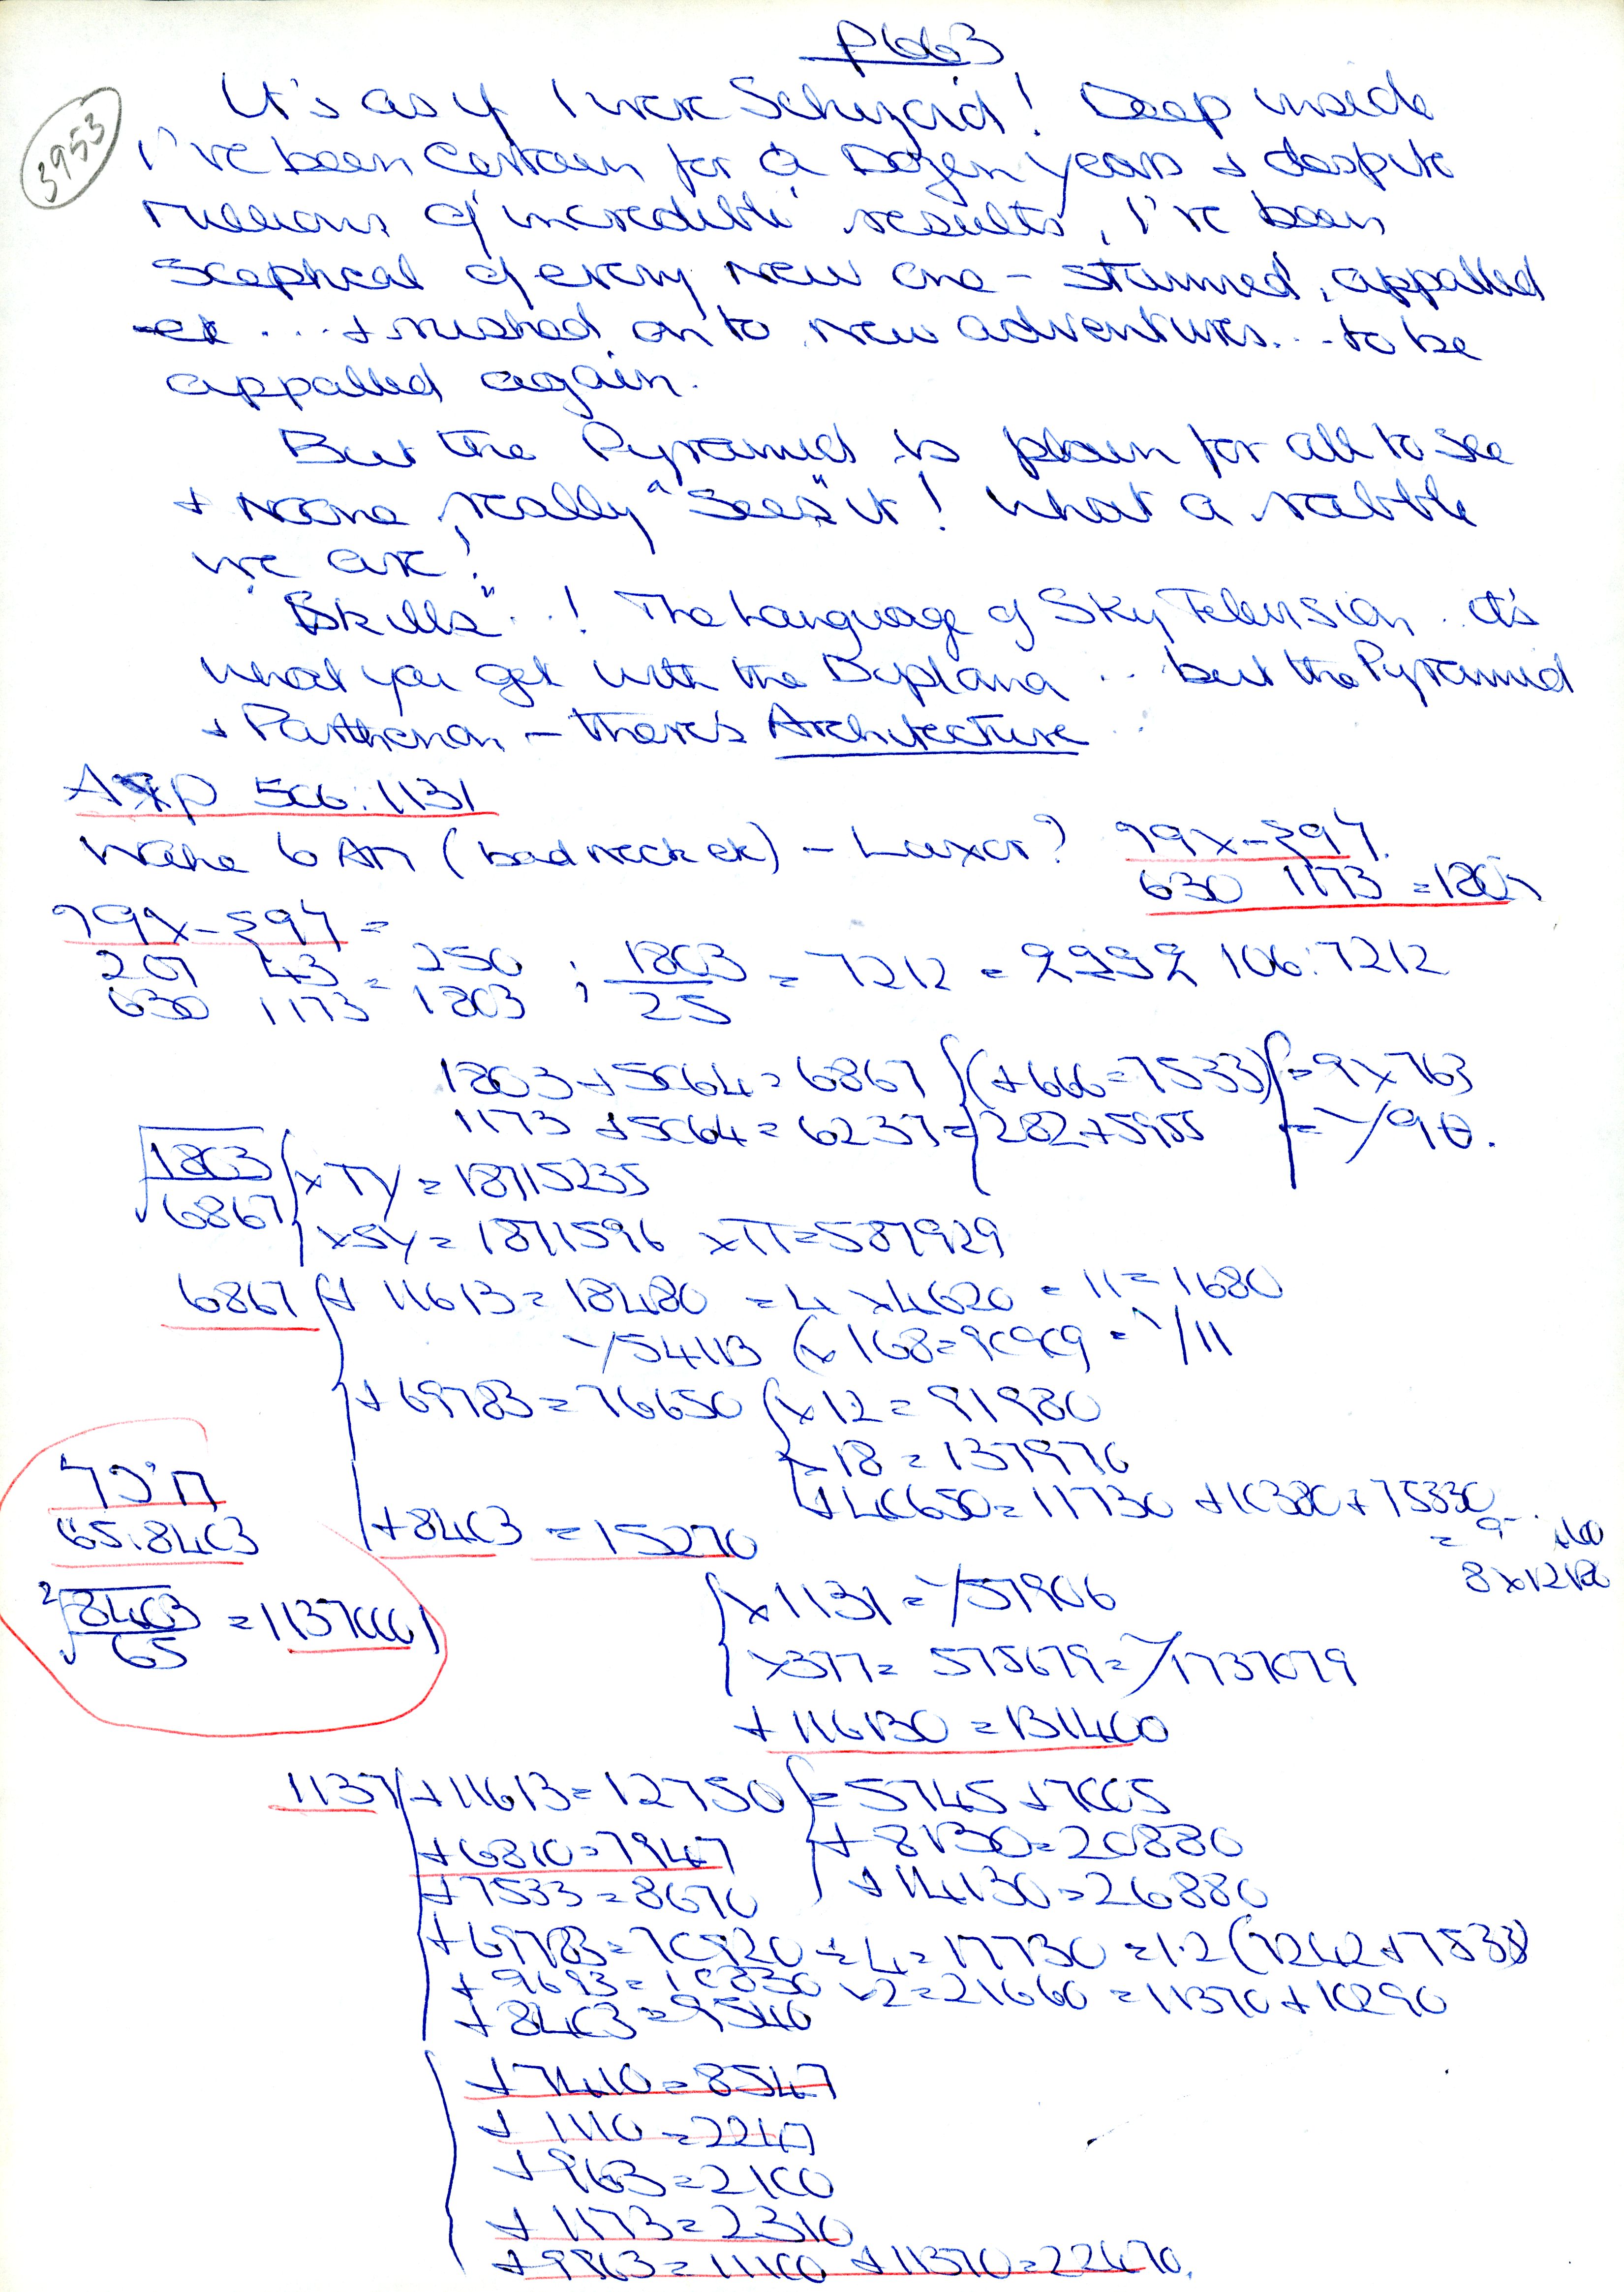 P663
3953
It's as if I were Schizoid! Deep inside
I've been certain for a Dozen years & despite
millions of 'incredible' results, I've been
Sceptical of every new one – stunned, appalled
etc ... & rushed on to new adventures... to be
appalled again.
But the Pyramid is plain for all to see
& Noone really "Sees" it! What a rabble
we are!
"Skills"..! The Language of Sky Television.. it's
what you get with the Diploma .. but the Pyramid
& Parthenon – there's Architecture..
506:1131
Wake 6 AM (bad neck etc) – Luxor?
630 1173 = 1803
207 43 = 250 ; 1803/25 = 7212 = 106:7212
630 1173 1803
1803 + 5064 = 6867 (+666 = 7533) = 9 x 763
1173 + 5064 = 6237 = 282 + 5955
√1803/6867 x TY = 18715235
x SY = 1871596 x π = 587929
6867 + 11613 = 18480 = 4 x 4620 ÷ 11 = 1680
Y54113 (x 168 = 90909 = Y11
+ 69783 = 76650 (x 12 = 91980
x 18 = 137976
+ 40650 = 11730 + 10380 + 75330
8 x 1212
+ 8403 = 15270
65:8403
²√8403/65 = 1137000
x 1131 = Y57906
x 377 = 575679 = Y1737079
+ 116130 = 131400
1137 + 11613 = 12750 = 5745 + 7005
+ 6810 = 7947 + 8130 = 20880
+ 7533 = 8670 + 14130 = 26880
+ 69783 = 70920 ÷ 4 = 17730 = 1.2 (7242 + 7533)
+ 9693 = 10830 x 2 = 21660 = 11370 + 10290
+ 8403 = 9540
+ 7410 = 8547
+ 1110 = 2247
+ 963 = 2100
+ 1173 = 2310
+ 9963 = 11100 + 11370 = 22470.